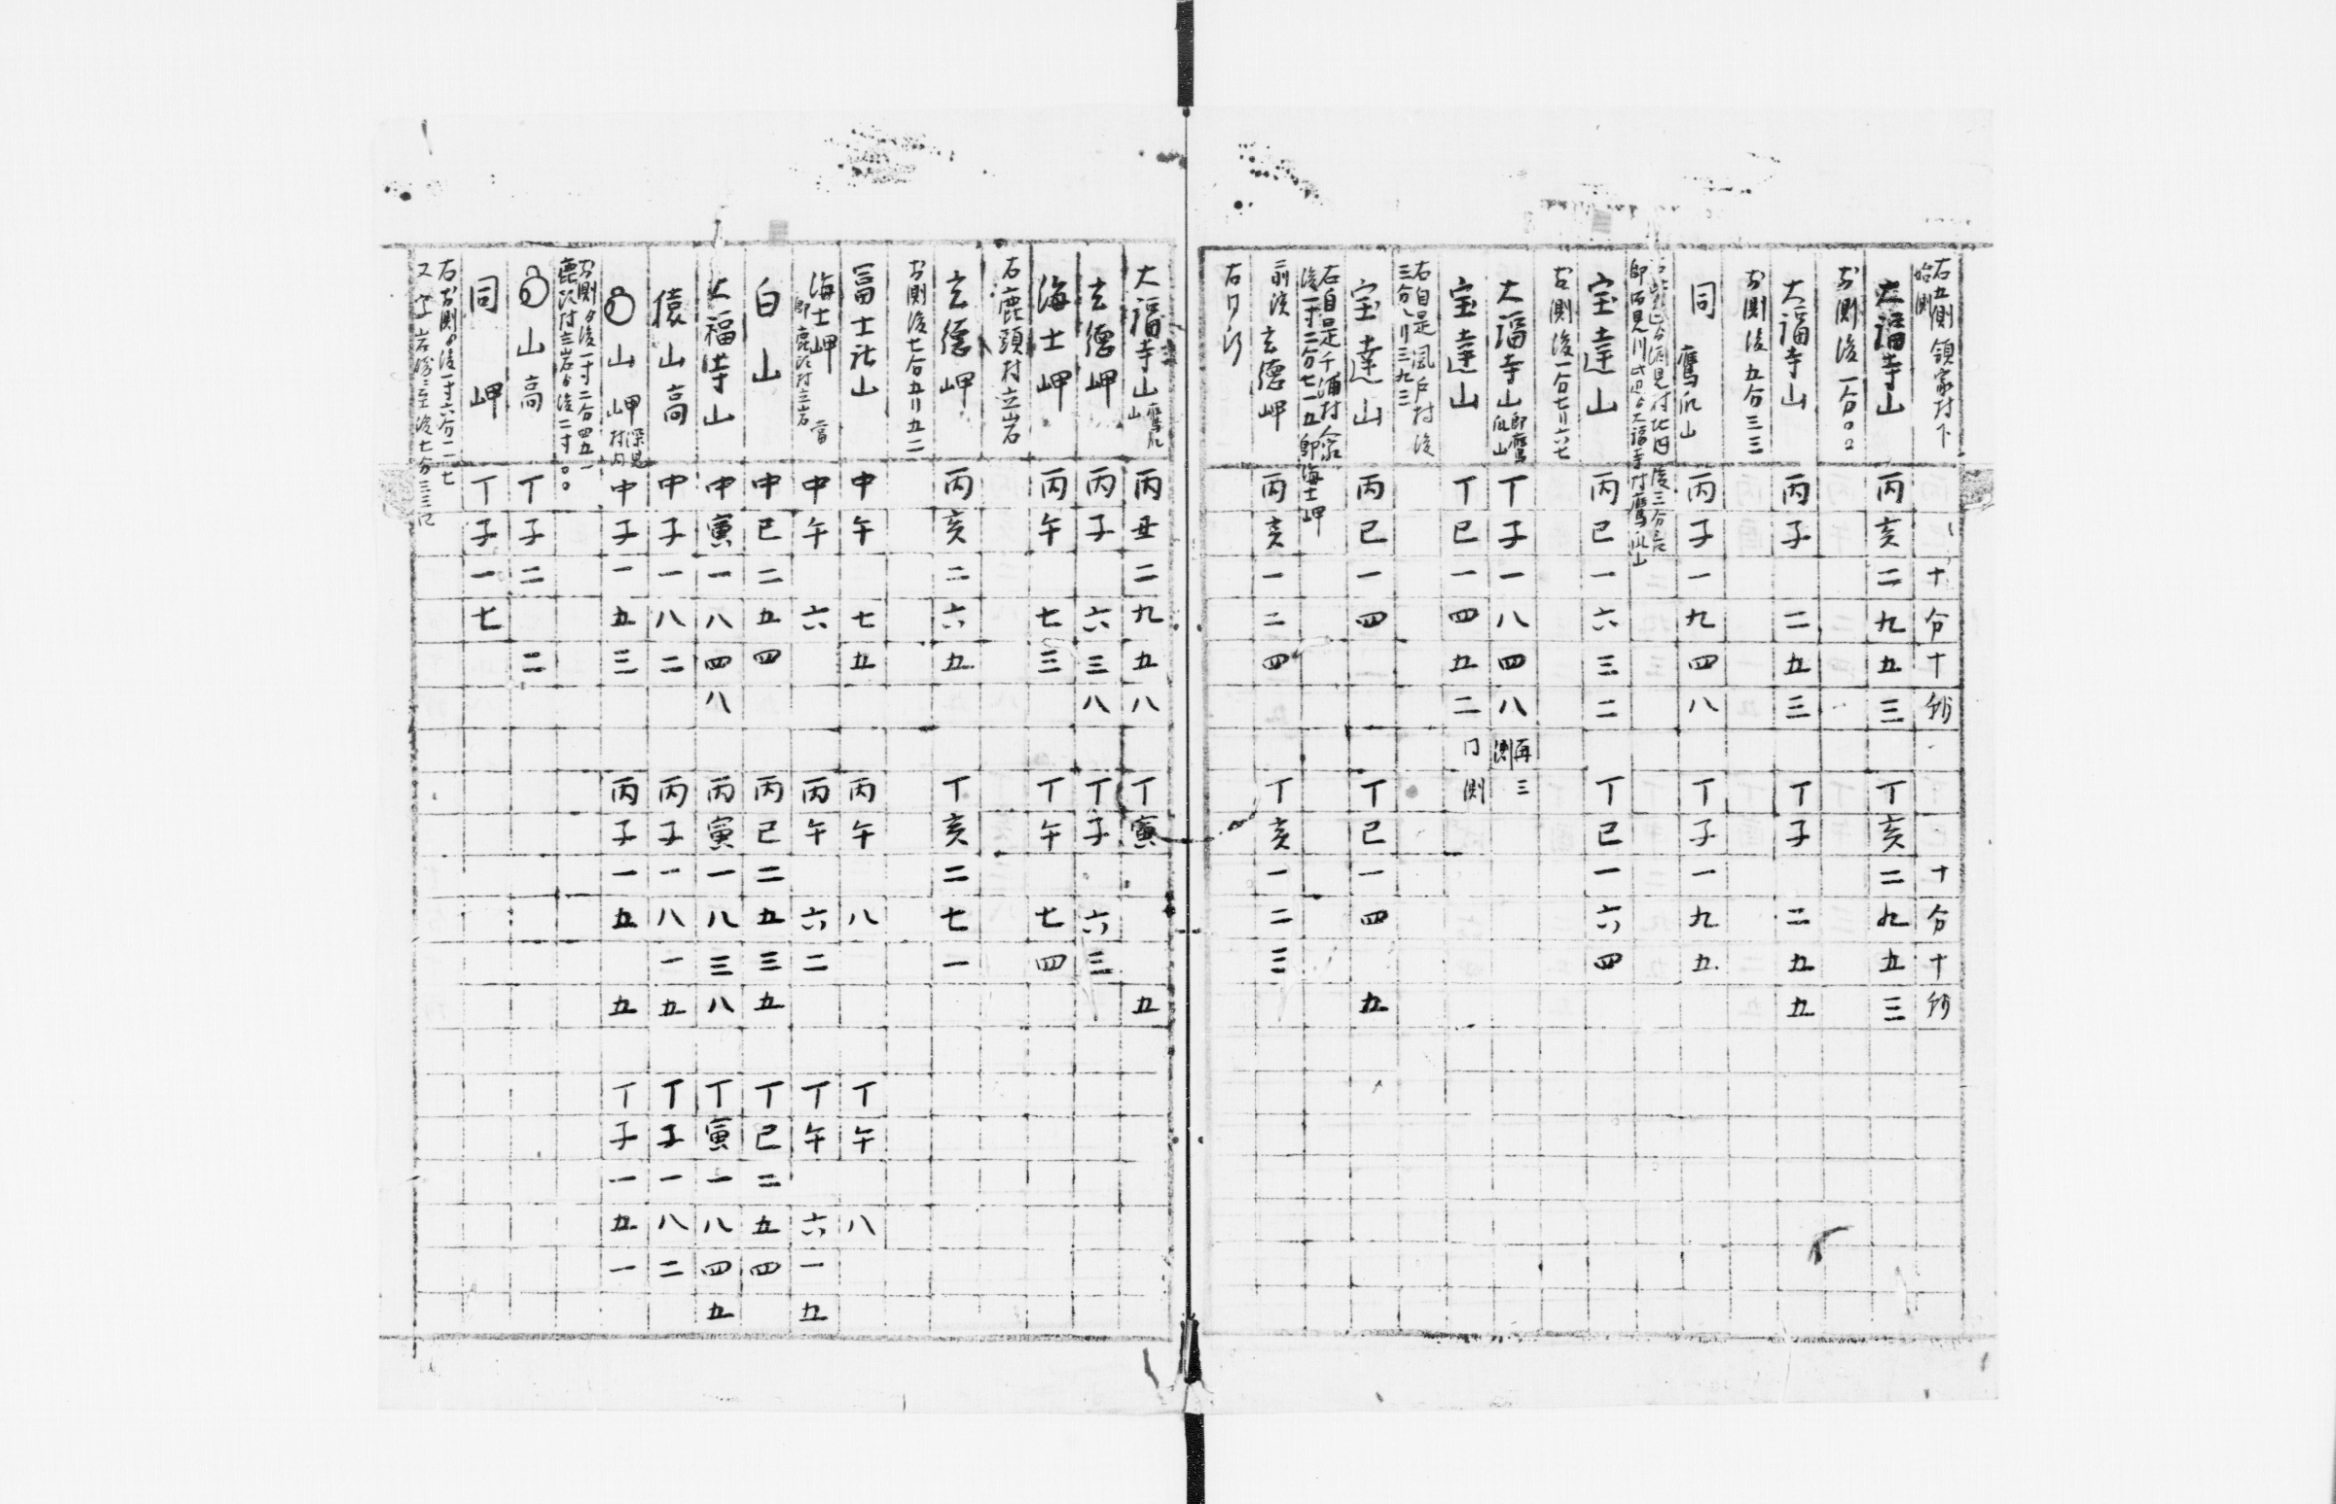 右五側領家村下
始側
十分十秒 十分十秒
大福寺山 丙亥二九五三 丁亥二九五三
右側後一分〇〇
大福寺山 丙子 二五三 丁子 二五五
右側後五分三三
同 鷹爪山 丙子一九四八 丁子一九五
宝達山 丙巳一六三二 丁巳一六四
右側後一分七リ六七
大福寺山 即鷹爪山 丁子一八四八 再三測
宝達山 丁巳一四五二 同測
右自是風戸村後
三分八リ三九三
宝達山 丙巳一四 丁巳一四 五
右自是千浦村
後一寸二分七一五 即海士岬
前後 玄徳岬 丙亥一二四 丁亥一二三
大福寺山 鷹爪山 丙丑二九五八 丁寅 五
玄徳岬 丙子 六三八 丁子 六三
海士岬 丙午 七三 丁午 七四
右鹿頭村立岩
玄徳岬 丙亥二六五 丁亥二七一
右側後七分五リ五二
冨士社山 中午 七五 丙午 八 丁午 八
海士岬 即鹿頭村三岩 當 中午 六 丙午 六二 丁午 六一五
白山 中巳二五四 丙巳二五三五 丁巳二五四
大福寺山 中寅一八四八 丙寅一八三八 丁寅一八四五
猿山高 中子一八二 丙子一八一五 丁子一八二
山岬 深見村内 中子一五三 丙子一五 五 丁子一五一
右側ゟ後一寸二分四五一
鹿頭村立岩ゟ後二寸〇〇
山高 丁子二 二
同岬 丁子一七
右右側ゟ後一寸六分二一七